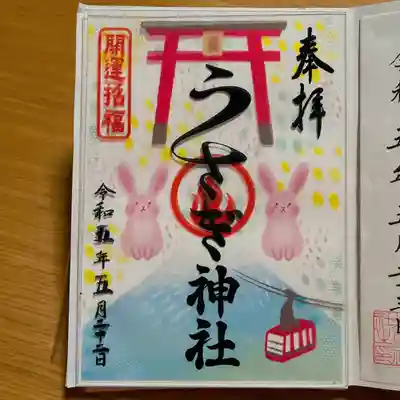 奉拝
開運招福
うさぎ神社
令和五年五月二十二日
令和五年五月二十二日